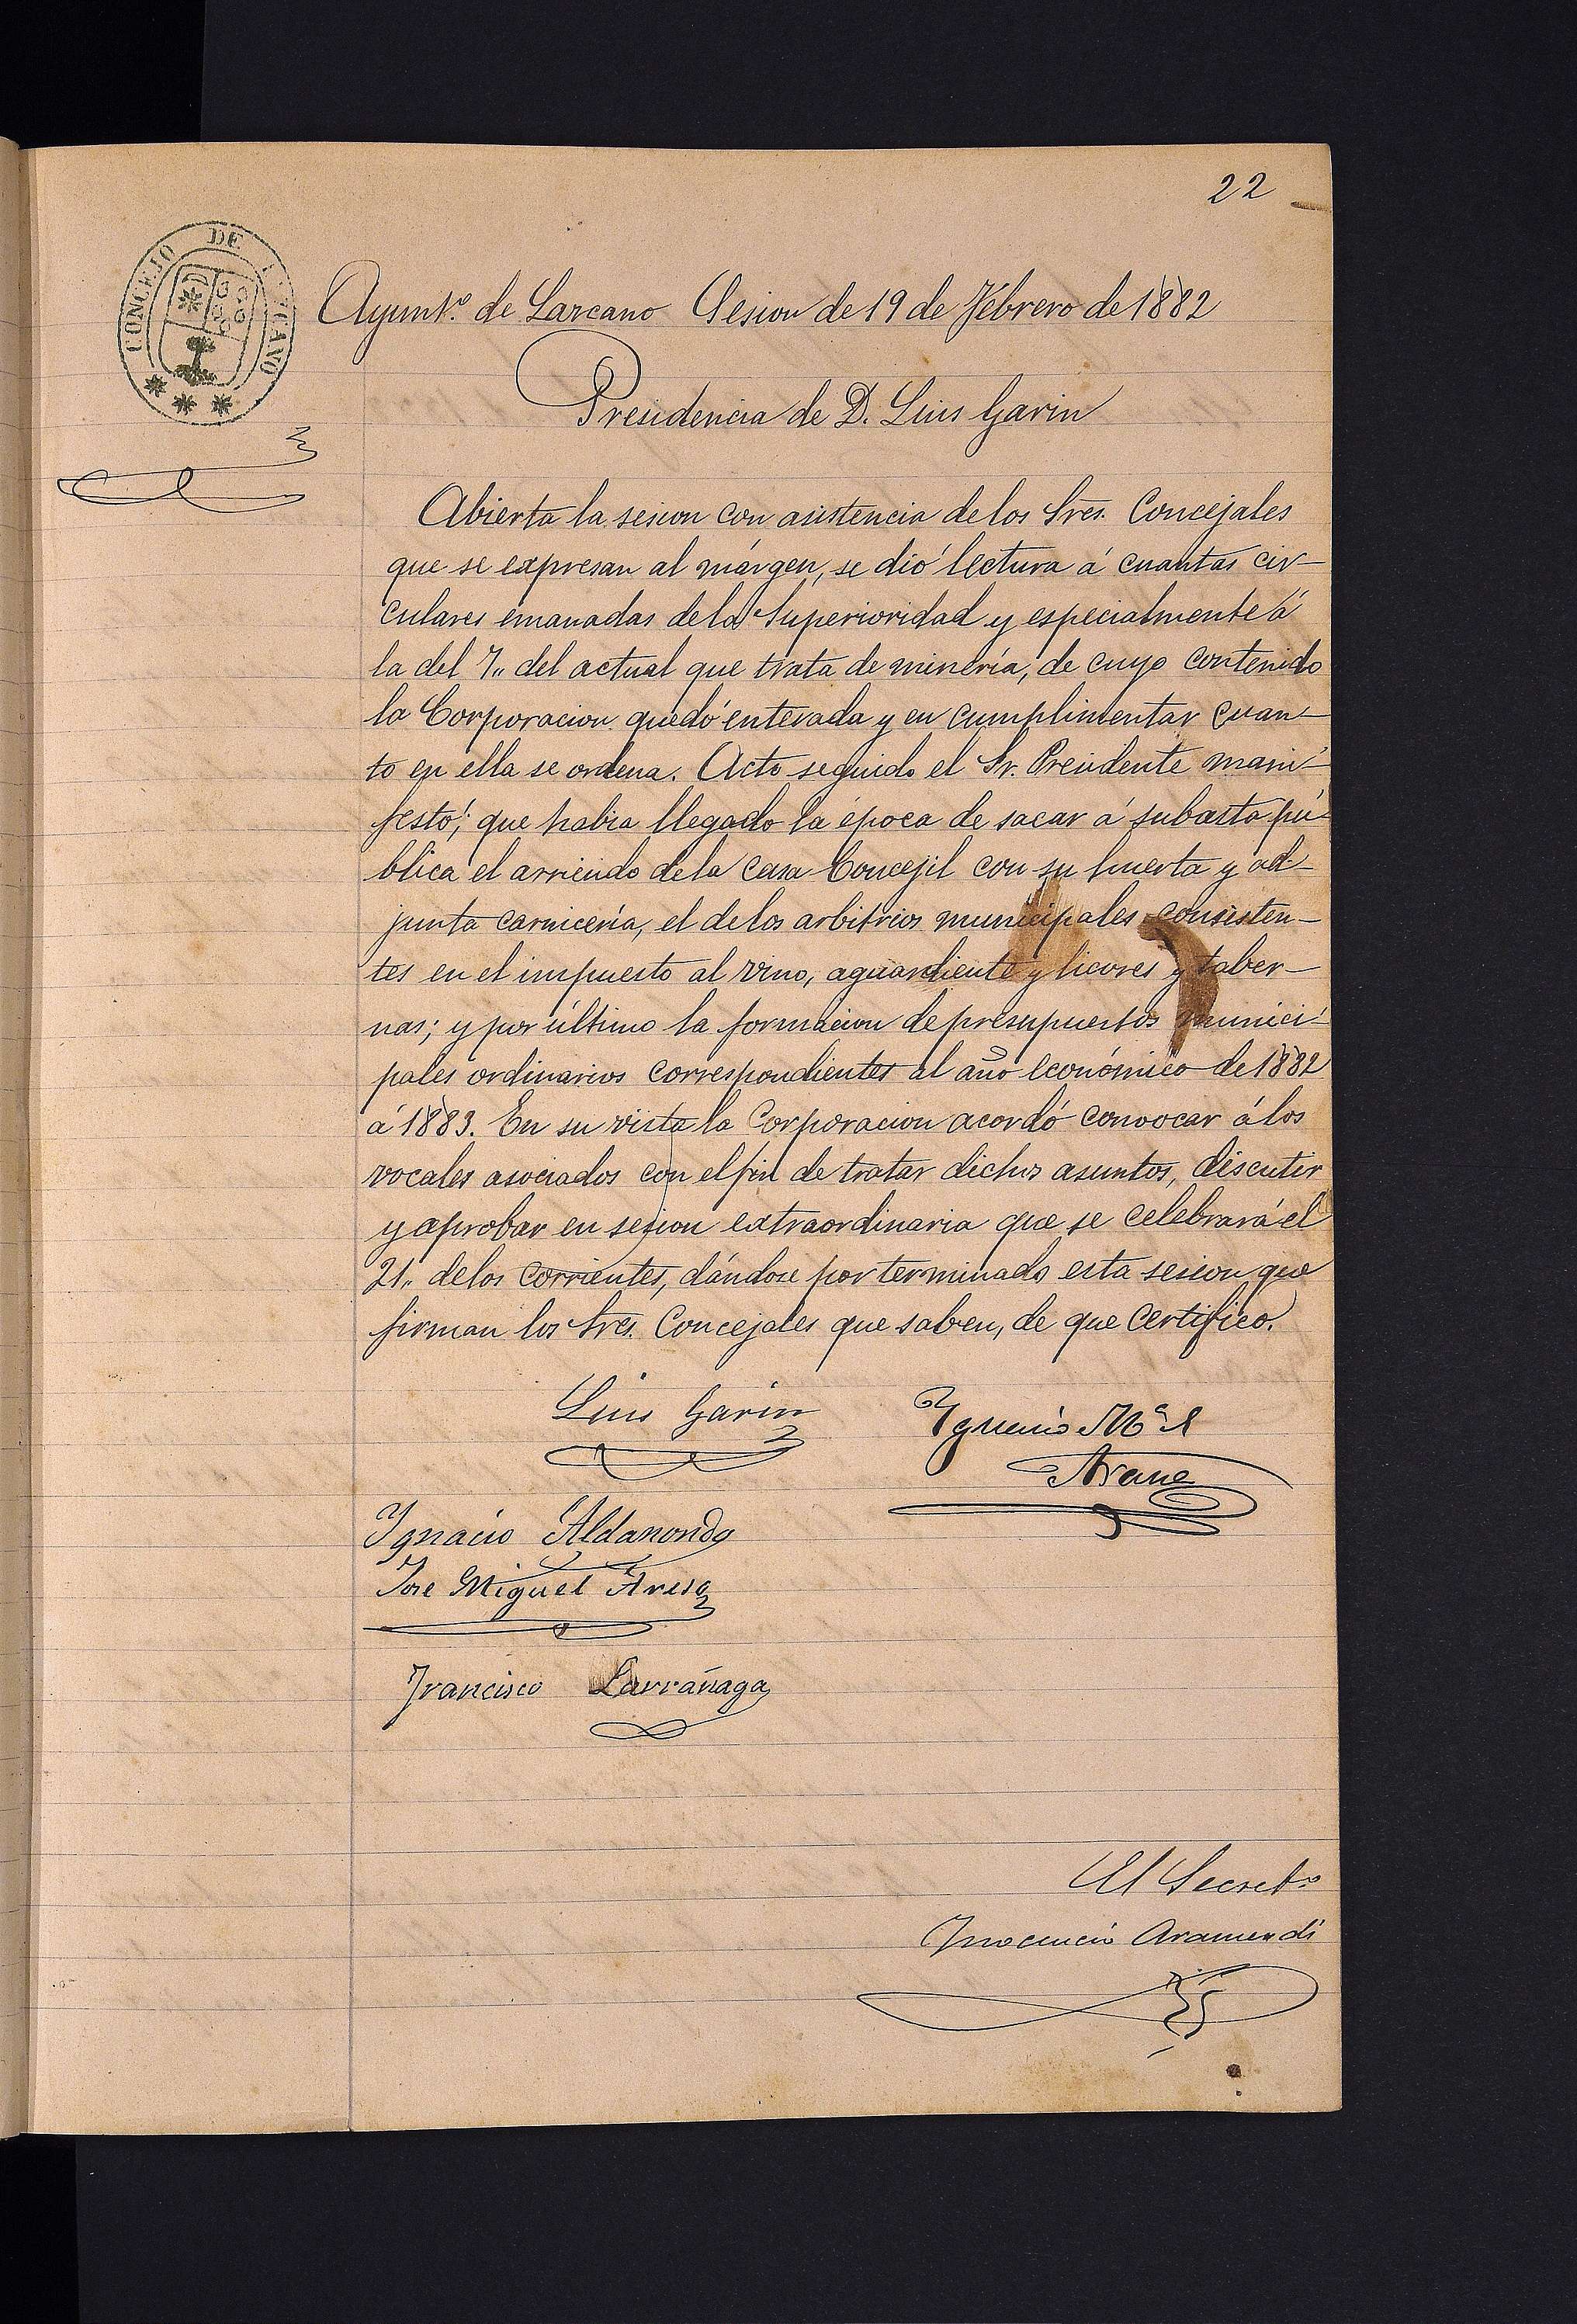 22
CONCEJO DE
Ayunt.º de Lazcano Sesion de 19 de Febrero de 1882
Presidencia de D. Luis Garin
Abierta la sesion con asistencia de los Sres. Concejales
que se expresan al márgen, se dió lectura á cuantas cir-
culares emanadas de la Superioridad y especialmente á
la del 7,, del actual que trata de minería, de cuyo contenido
la Corporacion quedó enterada y en cumplimentar cuan-
to en ella se ordena. Acto seguido el Sr. Presidente mani-
festó; que habia llegado la época de sacar á subasta pú-
blica el arriendo de la Casa Concejil con su huerta y ad-
junta carnicería, el de los arbitrios municipales consisten-
tes en el impuesto al vino, aguardiente y licores y taber-
nas; y por último la formacion de presupuestos munici-
pales ordinarios correspondientes al año económico de 1882
á 1883. En su vista la Corporacion acordó convocar á los
vocales asociados con el fin de tratar dichos asuntos, discutir
y aprobar en sesion extraordinaria que se celebrará el
21,, de los corrientes, dándose por terminada esta sesion que
firman los Sres. Concejales que saben, de que Certifico.
Luis Garin
Ygnacio M.ª
Ignacio Aldanondo
Jose Miguel Areso
Francisco Larrañaga
El Secret.º
Inocencio Aramendi